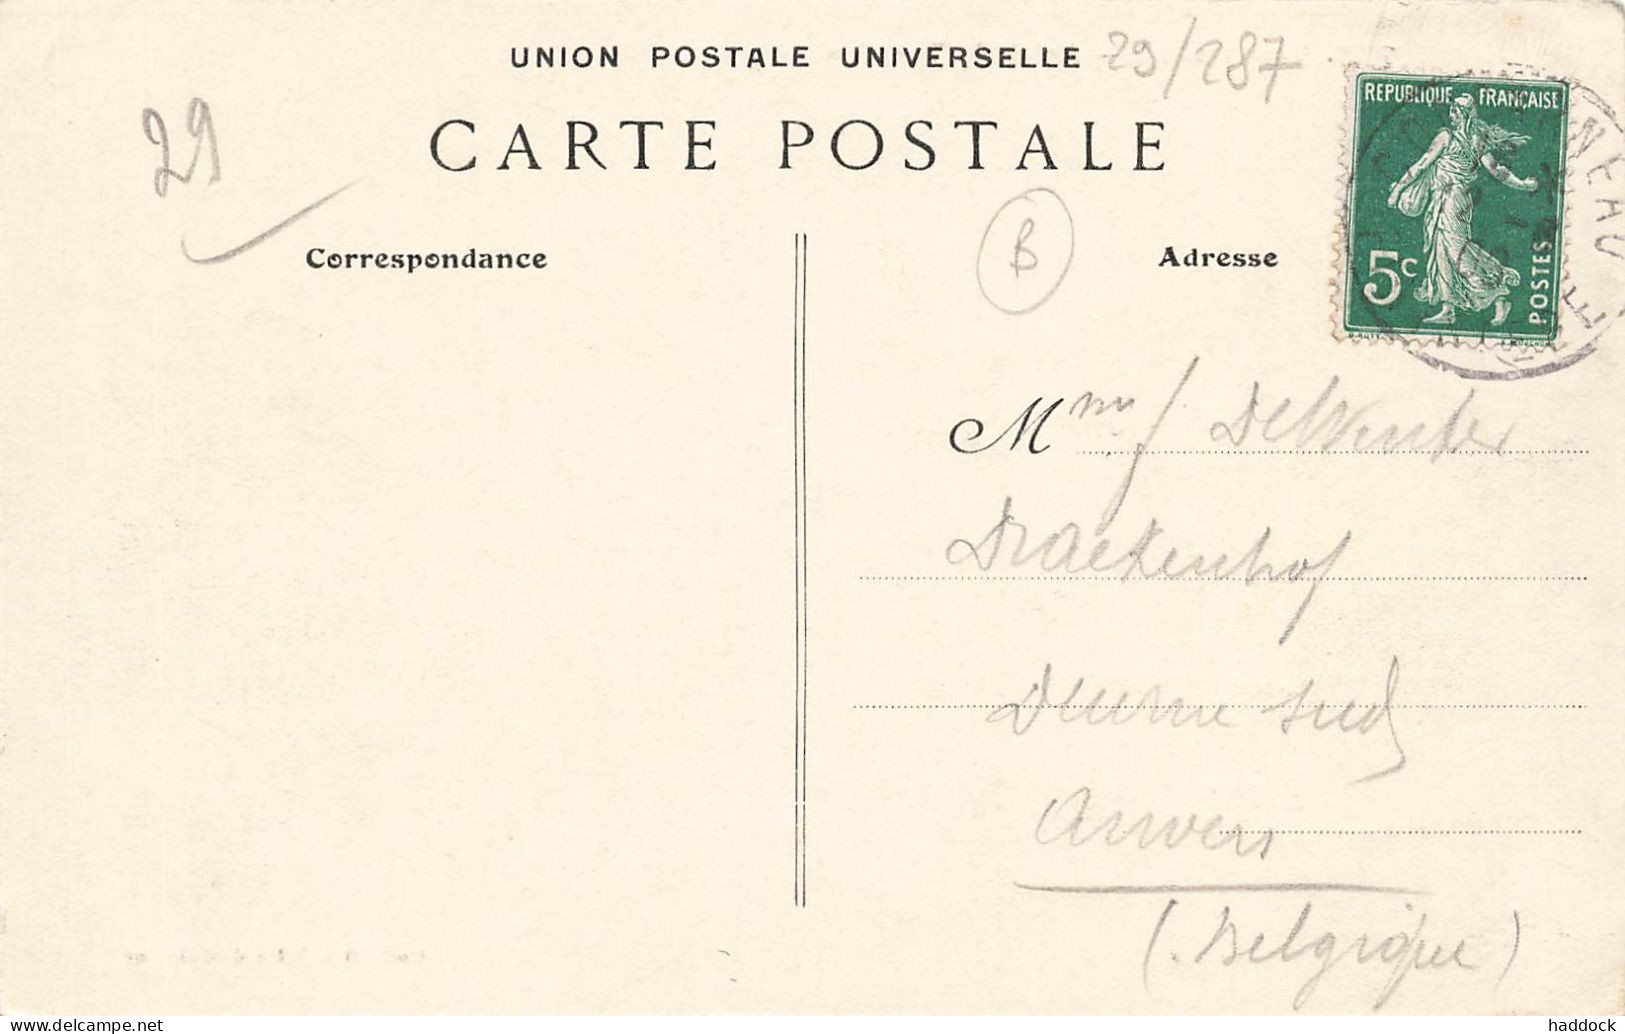 UNION POSTALE UNIVERSELLE 29/287
29
CARTE POSTALE
B
Correspondance
Adresse
REPUBLIQUE FRANÇAISE
5c
POSTES
Mme J. DeWinter
Drackenhof
Deurne sud
Anvers
(Belgique)
www.delcampe.net
haddock